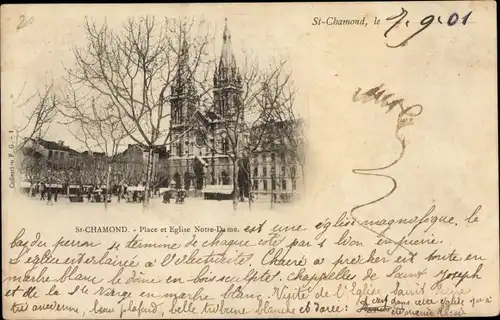 20
St-Chamond, le 7.9.01
Collection F. G. - 1
St-CHAMOND. - Place et Église Notre-Dame. est une église magnifique. le
bas du perron se termine de chaque côté par 1 lion en pierre.
L'église est éclairée à l'électricité. Chaire à prêcher est toute en
marbre blanc le dôme en bois sculpté. chappelles de Saint Joseph
et de la Ste Vierge en marbre blanc. Visite de l'Église Saint
très ancienne, bas plafond, belle tribune blanche et dorée:
dans cette église